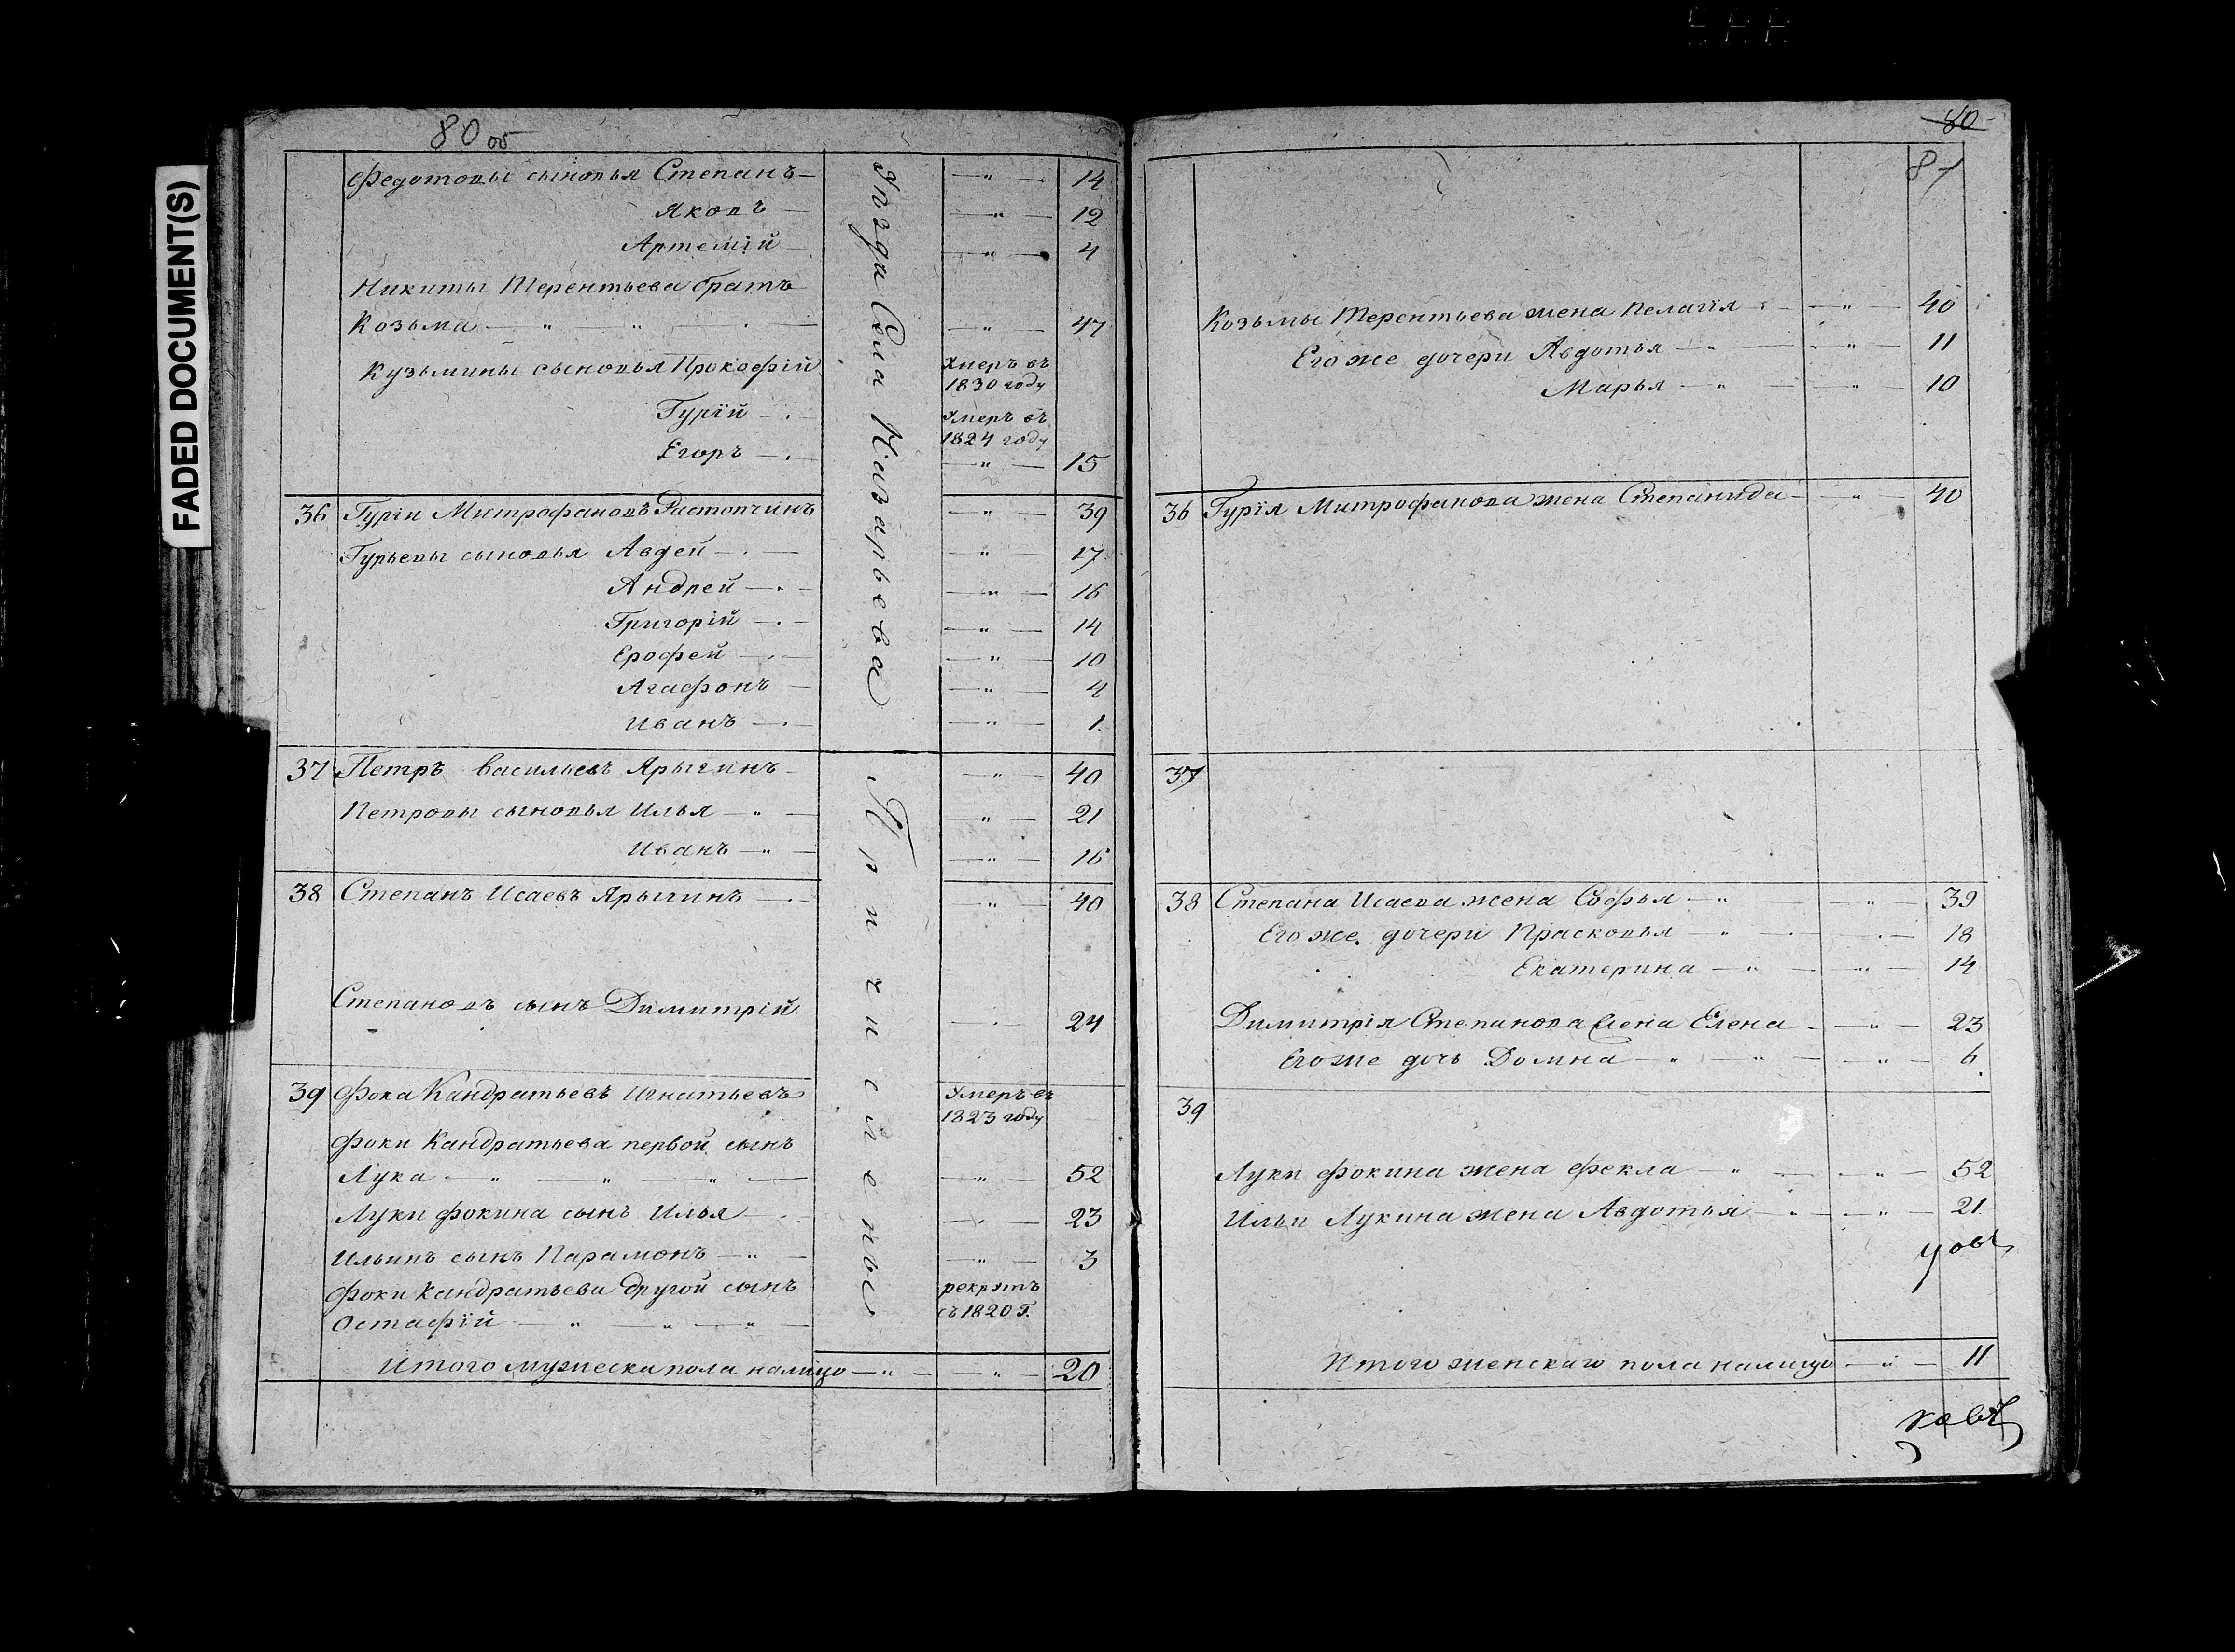 FADED DOCUMENT(S)
80 об
Федотовы сыновья Степанъ — " — 14
Яковъ — " — 12
Артемій — " — 4
Никиты Терентьева братъ
Козьма — " — " — " — 47
Кузьмины сыновья Прокофій Умеръ въ
1830 году
Гурій Умеръ въ
1824 году
Егоръ — " — 15
36 Гурій Митрофановъ Растопчинъ — " — 39
Гурьевы сыновья Авдей — " — 17
Андрей — " — 16
Григорій — " — 14
Ерофей — " — 10
Агафонъ — " — 4
Иванъ — " — 1.
37 Петръ Васильевъ Ярыгинъ — " — 40
Петровы сыновья Илья — " — 21
Иванъ — " — 16
38 Степанъ Исаевъ Ярыгинъ — " — 40
Степановъ сынъ Димитрій — " — 24
39 Фока Кандратьевъ Игнатьевъ Умеръ въ
1823 году
Фоки Кандратьева первой сынъ
Лука — " — " — " — 52
Луки Фокина сынъ Илья — " — 23
Ильинъ сынъ Парамонъ — " — 3
Фоки Кандратьева другой сынъ рекрутъ
Остафій — " — " — " съ 1820 г.
Итого мужеска пола налицо — " — " — 20
уѣзда Села Назарьева
Приписные
80
81
Козьмы Терентьева жена Пелагія — " — 40
Его же дочери Авдотья — " — 11
Марья — " — 10
36 Гурія Митрофанова жена Степанида — " — 40
37
38 Степана Исаева жена Софья — " — 39
Его же дочери Прасковья — " — 18
Екатерина — " — 14
Димитрія Степанова жена Елена — " — 23
Его же дочь Домна — " — 6
39
Луки Фокина жена Фекла — " — 52
Ильи Лукина жена Авдотья — " — 21
Итого женскаго пола налицо — " — 11